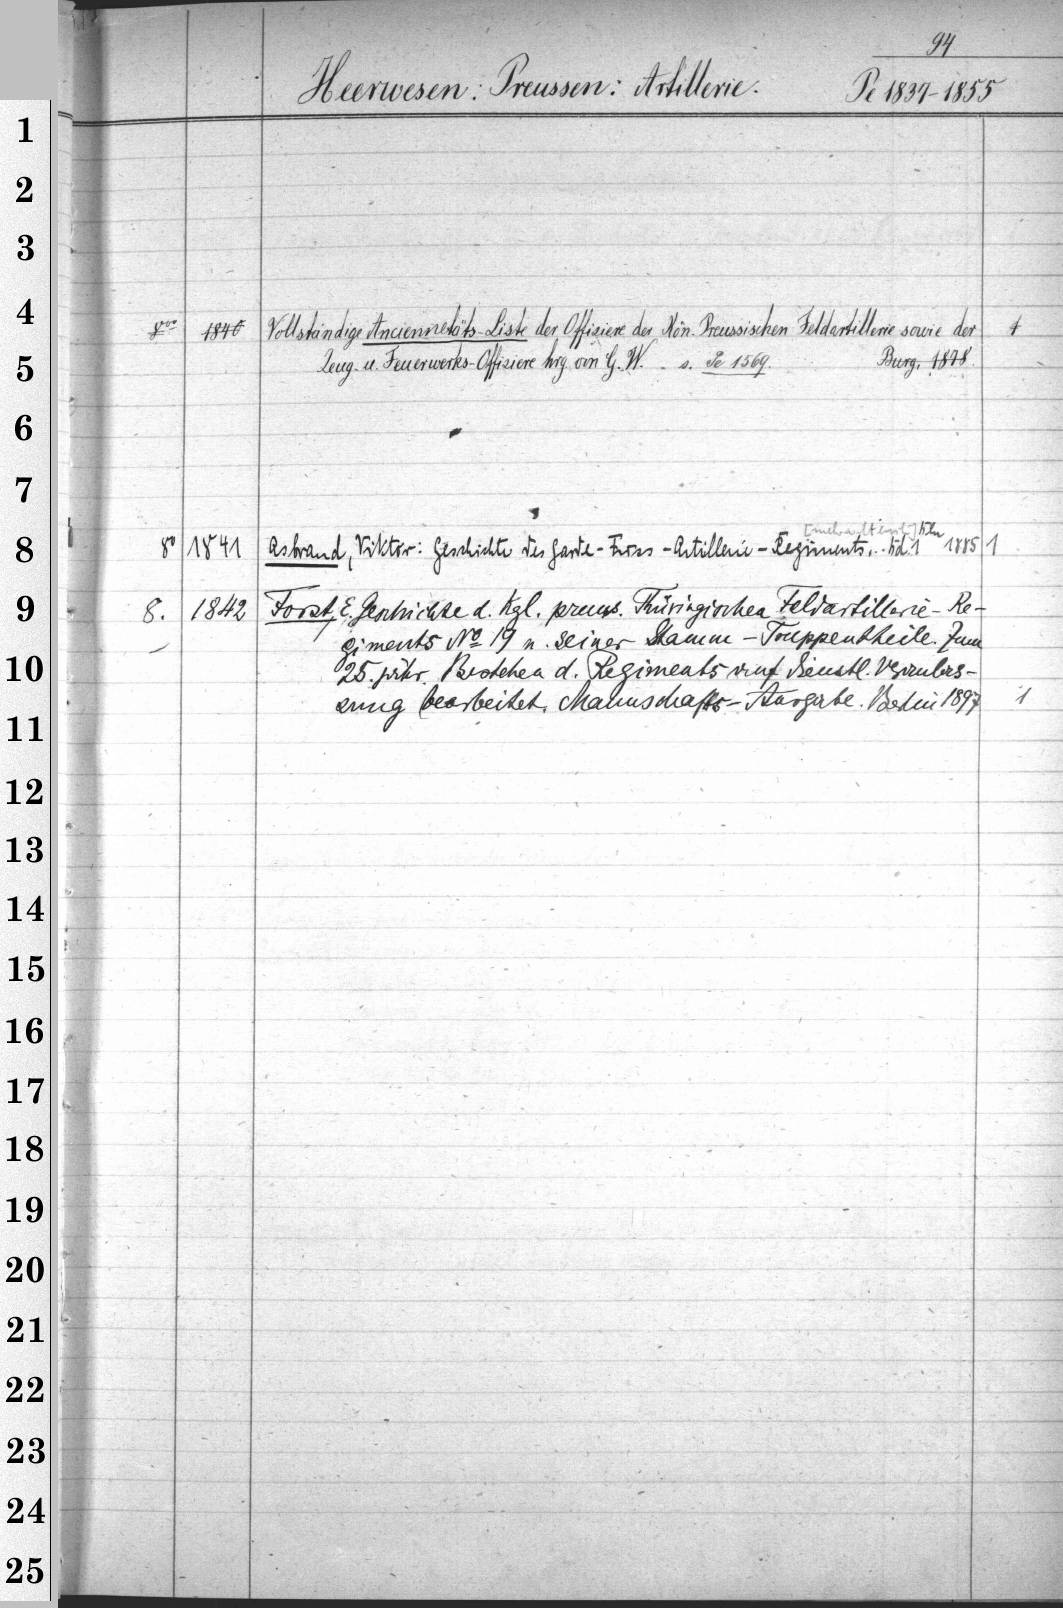 94
Heerwesen: Preussen: Artillerie. Pe 1837-1855
1
2
3
4
8vo 1840 Vollständige Anciennetäts-Liste der Offiziere der Kön. Preussischen Feldartillerie sowie der 1
5
Zeug- u. Feuerwerks-Offiziere hrg. von G. W. s. Pe 1569. Burg, 1878.
6
7
8
8° 1841 Asbrand, Viktor: Geschichte des Garde-Fuss-Artillerie-Regiments... Bd. 1 Bln 1885 1
9
8. 1842 Forst, E. Geschichte d. Kgl. preuss. Thüringischen Feldartillerie-Re-
giments No 19 u. seiner Stamm-Truppentheile. Zum
10
25. jähr. Bestehen d. Regiments auf dienstl. Veranlas-
sung bearbeitet. Mannschafts-Ausgabe. Berlin 1897 1
11
12
13
14
15
16
17
18
19
20
21
22
23
24
25